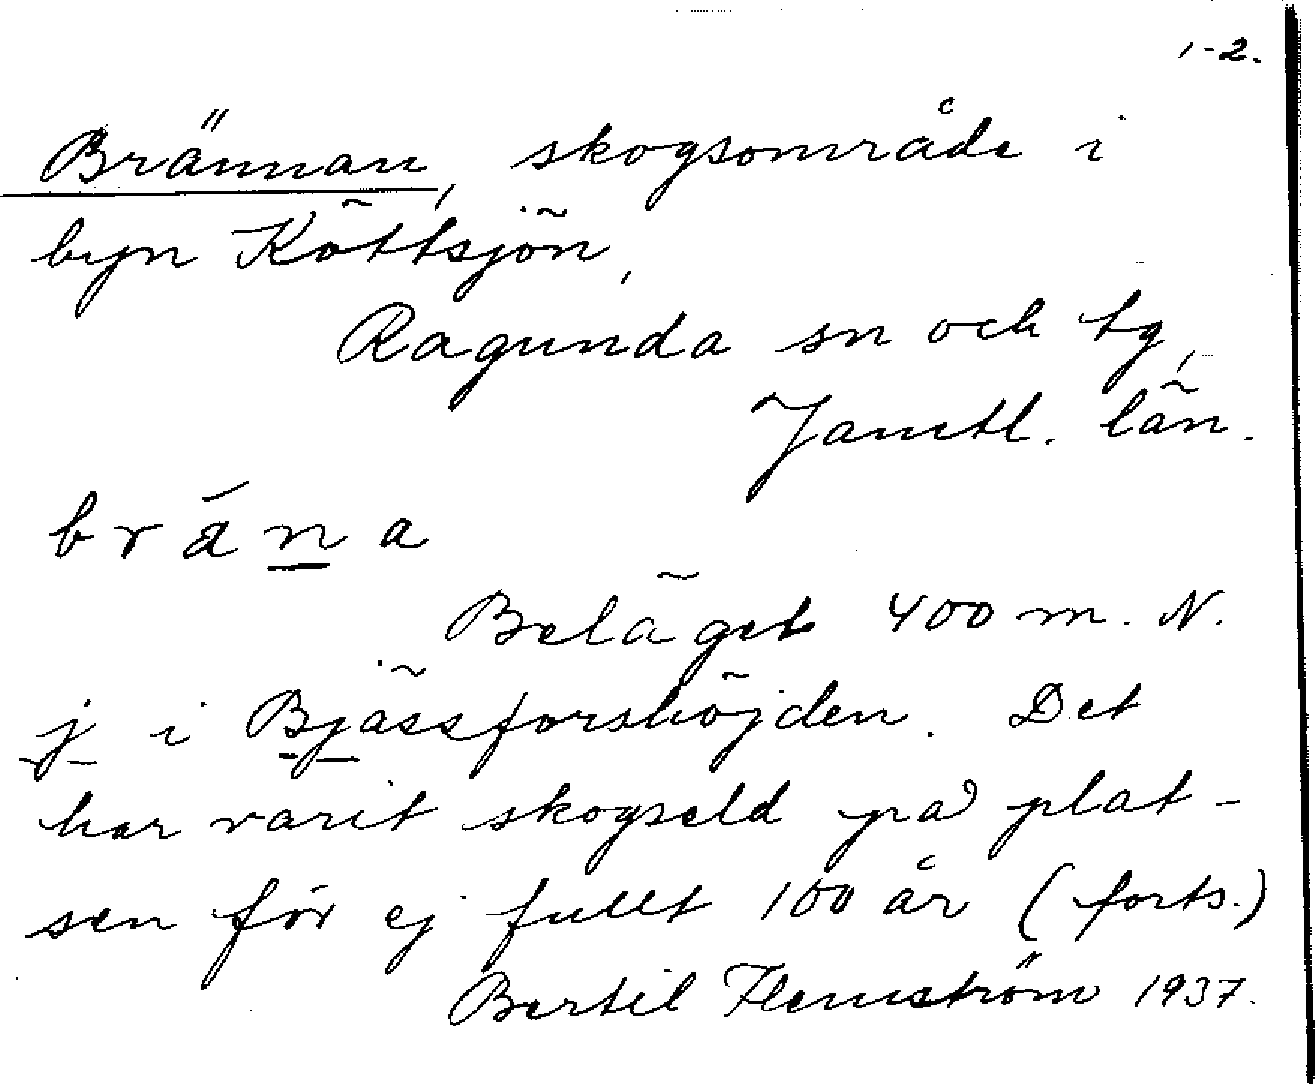 1-2.
Brännan, skogsområde i
byn Köttsjön,
Ragunda sn och tg,
Jämtl. län.
brána
Beläget 400 m. N.
j i Bjässforshöjden. Det
har varit skogseld på plat-
sen för ej fullt 100 år (forts.)
Bertil Flemström 1937.